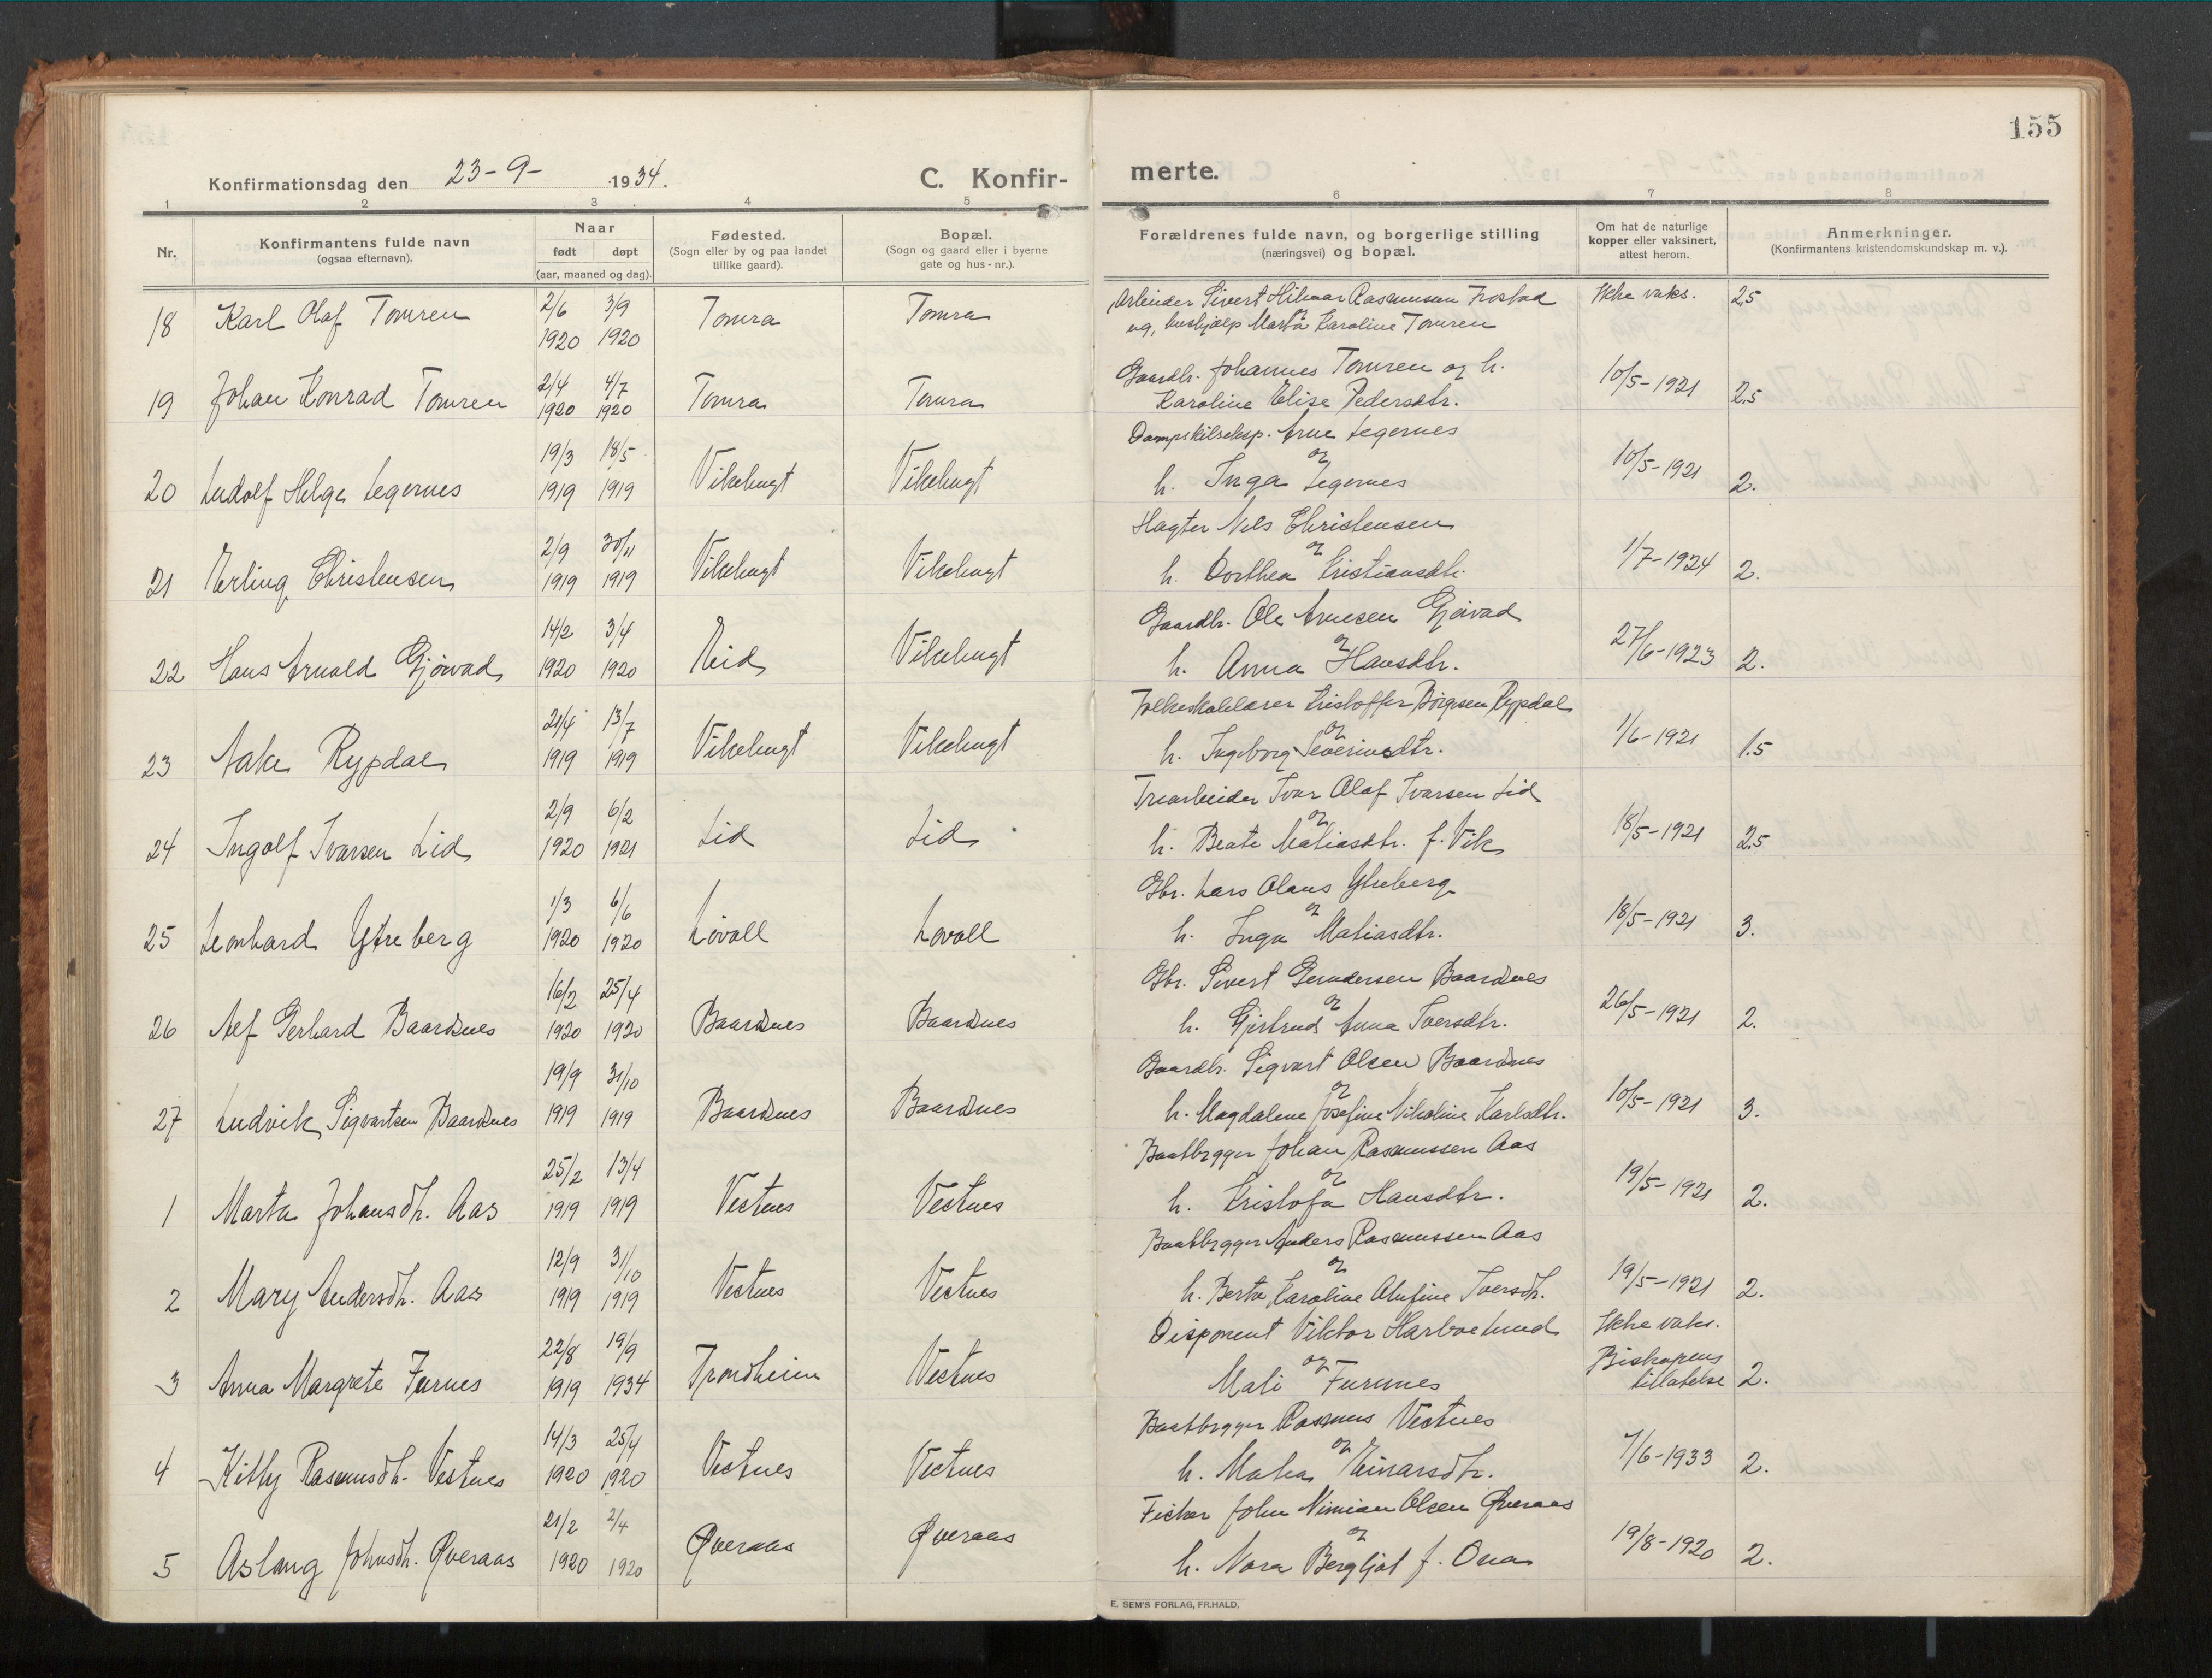 155
Konfirmationsdag den 23-9- 1934.
C. Konfirmerte.
1 2 3 4 5 6 7 8
Nr.
Konfirmantens fulde navn
(ogsaa efternavn).
Naar
født døpt
(aar, maaned og dag).
Fødested.
(Sogn eller by og paa landet
tillike gaard).
Bopæl.
(Sogn og gaard eller i byerne
gate og hus-nr.).
Forældrenes fulde navn, og borgerlige stilling
(næringsvei) og bopæl.
Om hat de naturlige
kopper eller vaksinert,
attest herom.
Anmerkninger.
(Konfirmantens kristendomskundskap m. v.).
18 Karl Olaf Tomren 2/6 1920 3/9 1920 Tomra Tomra Arbeider Sivert Hilmar Rasmussen Frostad
og ug, hushjælp Marta Karoline Tomren Ikke vaks. 2,5
19 Johan Konrad Tomren 2/4 1920 4/7 1920 Tomra Tomra Gaardbr. Johannes Tomren og h.
Karoline Elise Pedersdtr. 10/5-1921 2,5
20 Ludolf Helge Legernes 19/3 1919 18/5 1919 Vikebugt Vikebugt Dampskibseksp. Arne Legernes
og
h. Inga Legernes 10/5-1921 2.
21 Erling Christensen 2/9 1919 30/11 1919 Vikebugt Vikebugt Nils Christensen
og
h. Dorthea Kristiansdtr. 1/7-1924 2.
22 Hans Arnold Gjøvad 14/2 1920 3/4 1920 Eid Vikebugt Gaardbr. Ole Arnesen Gjøvad
og
h. Anna Hansdtr. 27/6-1923 2.
23 Aake Rypdal 21/4 1919 13/7 1919 Vikebugt Vikebugt Folkeskolelærer Kristoffer Børgesen Rypdal
og
h. Ingeborg Severinsdtr. 1/6-1921 1.5
24 Ingolf Ivarsen Lid 2/9 1920 6/2 1921 Lid Lid Træarbeider Ivar Olaf Ivarsen Lid
og
h. Beate Matiasdtr. f. Vik 18/5-1921 2,5
25 Leonhard Ytreberg 1/3 1920 6/6 1920 Løvoll Løvoll Gbr. Lars Olaus Ytreberg
og
h. Inga Matiasdtr. 18/5-1921 3.
26 Alf Gerhard Baardsnes 16/2 1920 25/4 1920 Baardsnes Baardsnes Gbr. Sivert Baardsnes
og
h. Gjertrud Anna Iversdtr. 26/5-1921 2.
27 Ludvik Sigvartsen Baardsnes 19/9 1919 31/10 1919 Baardsnes Baardsnes Gaardbr. Sigvart Olsen Baardsnes
og
h. Magdalene Josefine Nikoline Karlsdtr. 10/5-1921 3.
1 Marta Johansdtr. Aas 25/2 1919 13/4 1919 Vestnes Vestnes Baatbygger Johan Rasmussen Aas
og
h. Kristofa Hansdtr. 19/5-1921 2.
2 Mary Andersdtr. Aas 12/9 1919 31/10 1919 Vestnes Vestnes Baatbygger Anders Rasmussen Aas
og
h. Berta Karoline Olufine Iversdtr. 19/5-1921 2.
3 Anna Margrete Furnes 22/8 1919 19/9 1934 Trondheim Vestnes Disponent Viktor Harboe Lund
og
Mali Furnnes Ikke vaks.
Biskopens
tillatelse 2.
4 Kitty Rasmusdtr. Vestnes 14/3 1920 25/4 1920 Vestnes Vestnes Baatbygger Rasmus Vestnes
og
h. Matea Einarsdtr. 7/6-1933 2.
5 Aslaug Johnsdtr. Øveraas 21/2 1920 2/4 1920 Øveraas Øveraas Fisker John Olsen Øveraas
og
h. Nora Bergljot f. Ona 19/8-1920 2.
E. SEM'S FORLAG, FR.HALD.